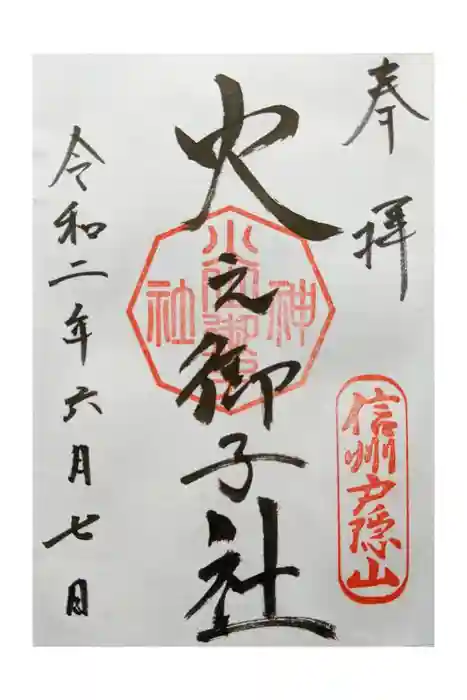 奉拝
信州戸隠山
火之御子社
神
社
令和二年六月七日